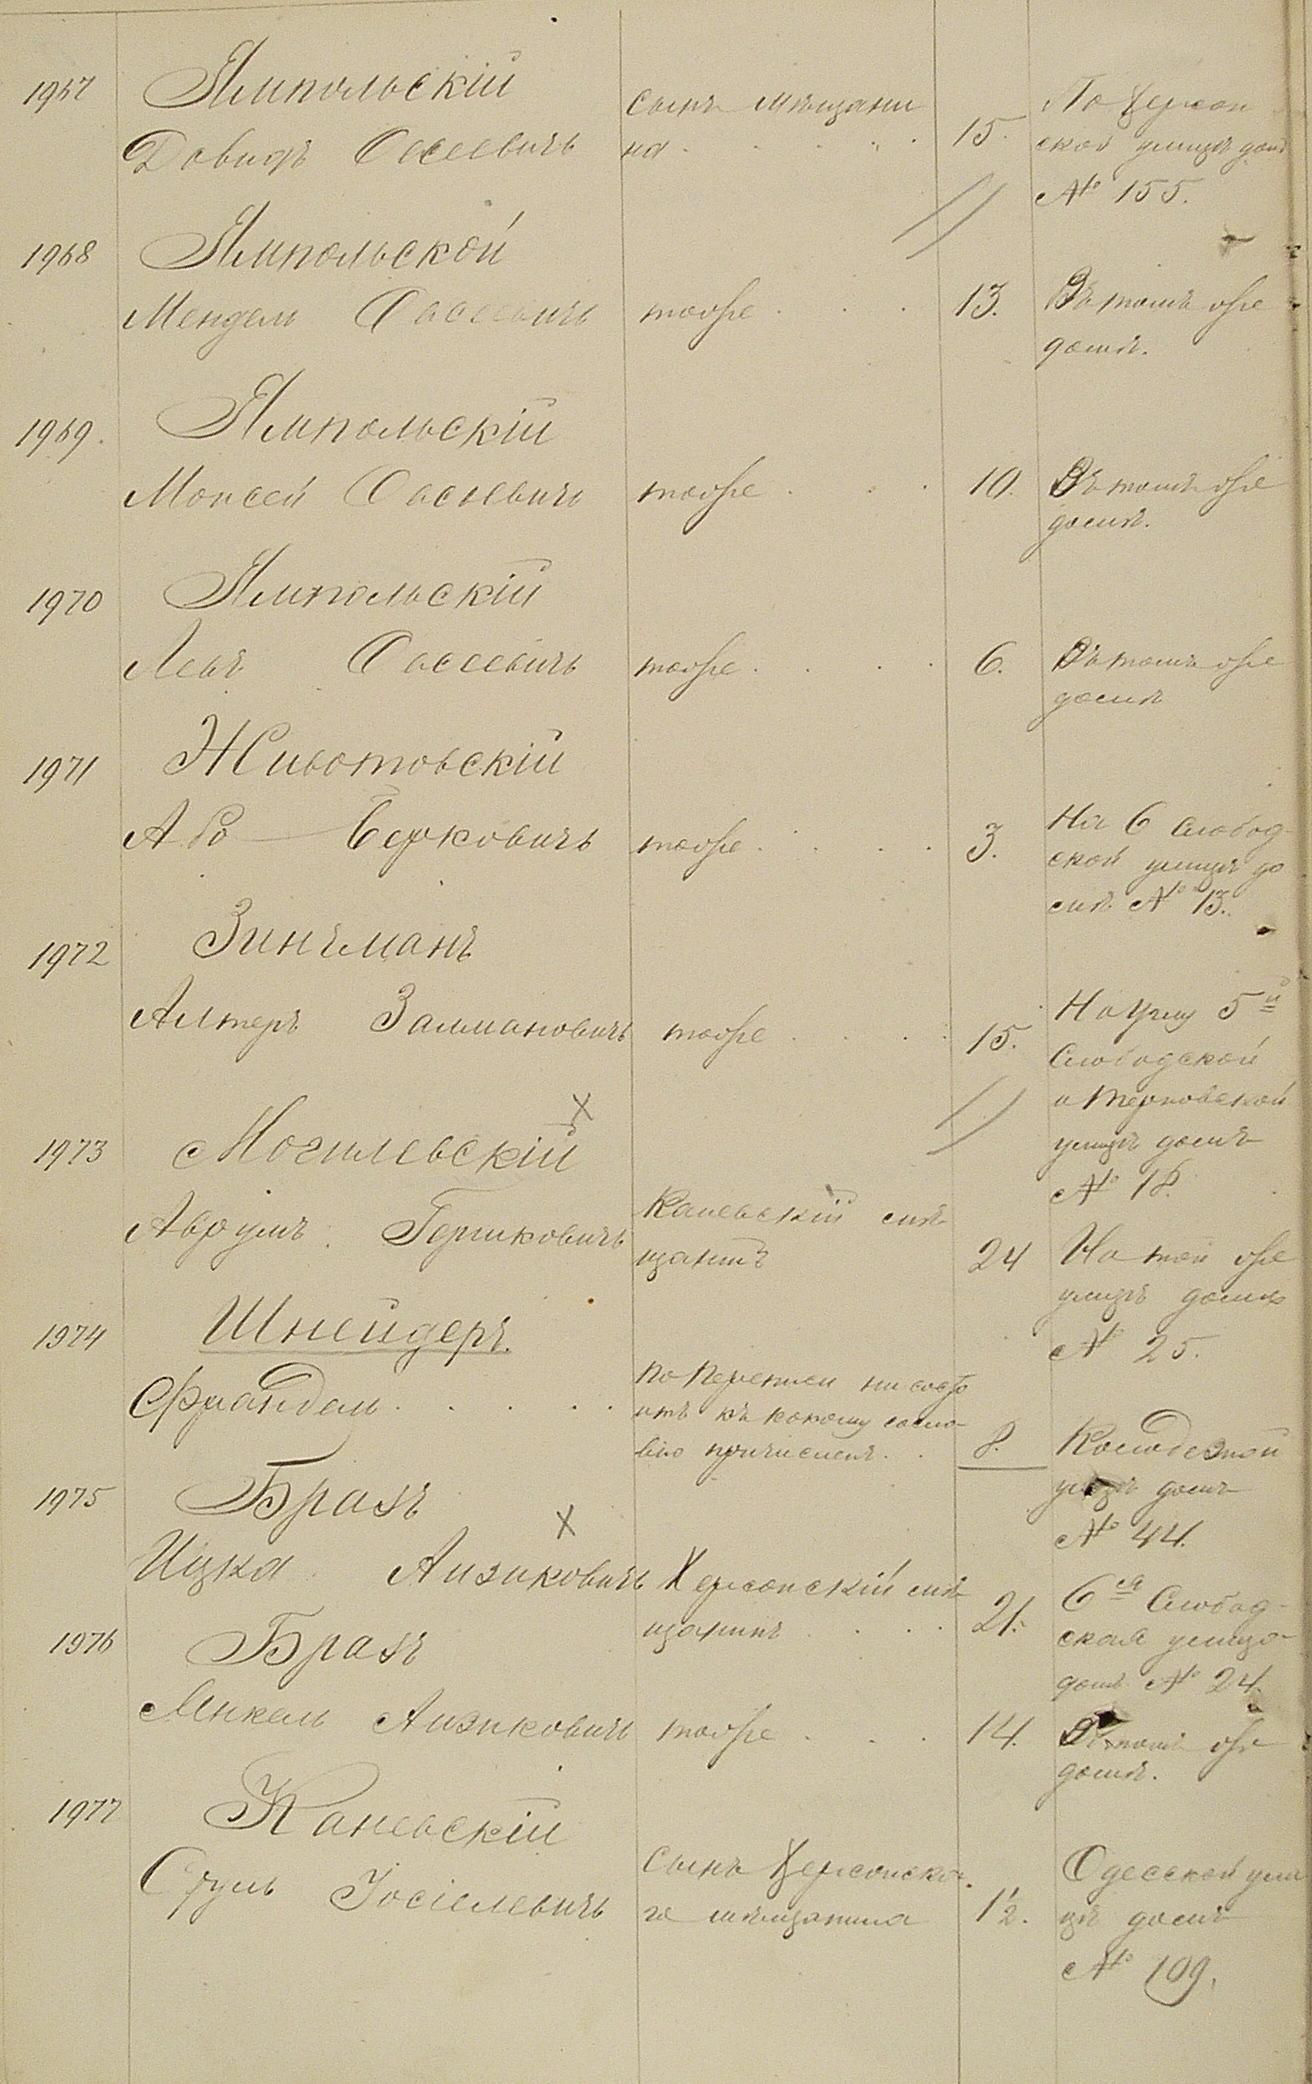 1967 Ямпольскій
Довидъ Осеевичъ сынъ мѣщани
на 15. По Херсон
ской улицѣ домъ
№ 155.
1968 Ямпольской
Мендель Осеевичъ тоже 13. Въ томъ же
домѣ.
1969. Ямпольскій
Моисей Осеевичъ тоже 10. Въ томъ же
домѣ.
1970 Ямпольскій
Левъ Осеевичъ тоже 6. Въ томъ же
домѣ
1971 Животовскій
Або Берковичъ тоже 3. На 6 Слобод-
ской улицѣ до
мъ № 13.
1972 Зинъманъ
Алтеръ Залмановичъ тоже 15. На углу 5й
Слободской
и Терновской
улицъ домъ
№ 18.
1973 Могилевскій
Аврумъ Гершковичъ Каневскій мѣ-
щанинъ 24 На той же
улицѣ домъ
№ 25.
1974 Шнейдеръ.
Фрайдель По переписи не состо
итъ къ какому сосло-
вію причисленъ. 8. Колодезной
улицѣ домъ
№ 44.
1975 Бразъ
Ицка Аизиковичъ Херсонскій мѣ-
щанинъ 21. 6я Слобод-
ская улица
домъ № 24.
1976 Бразъ
Янкель Аизиковичъ тоже 14. Въ томъ же
домѣ.
1977 Каневскій
Сруль Іосіелевичъ Сынъ Херсонска-
го мѣщанина 1½. Одесской ули
цѣ домъ
№ 109.